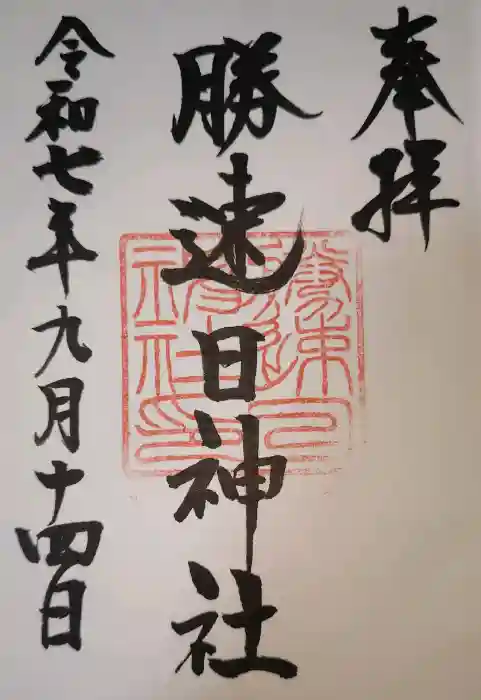 奉拝
勝速日神社
令和七年九月十四日